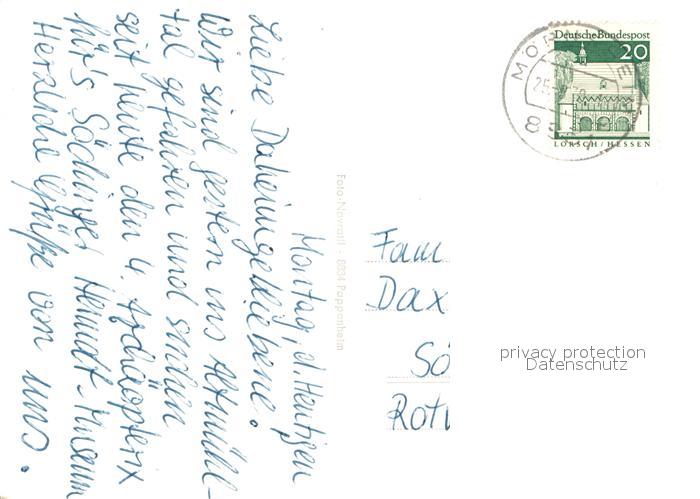 Montag, d. Heutigen
Liebe Daheimgebliebene!
Wir sind gestern ins Altmühl-
tal gefahren und suchen
seit heute den 4. Archäopterix
für's Söchinger Heimat-Museum
Herzliche Grüße von uns.
Foto-Nawratil · 8834 Pappenheim
Deutsche Bundespost
20
LORSCH/HESSEN
Fam
Dax
Sö
privacy protection
Datenschutz